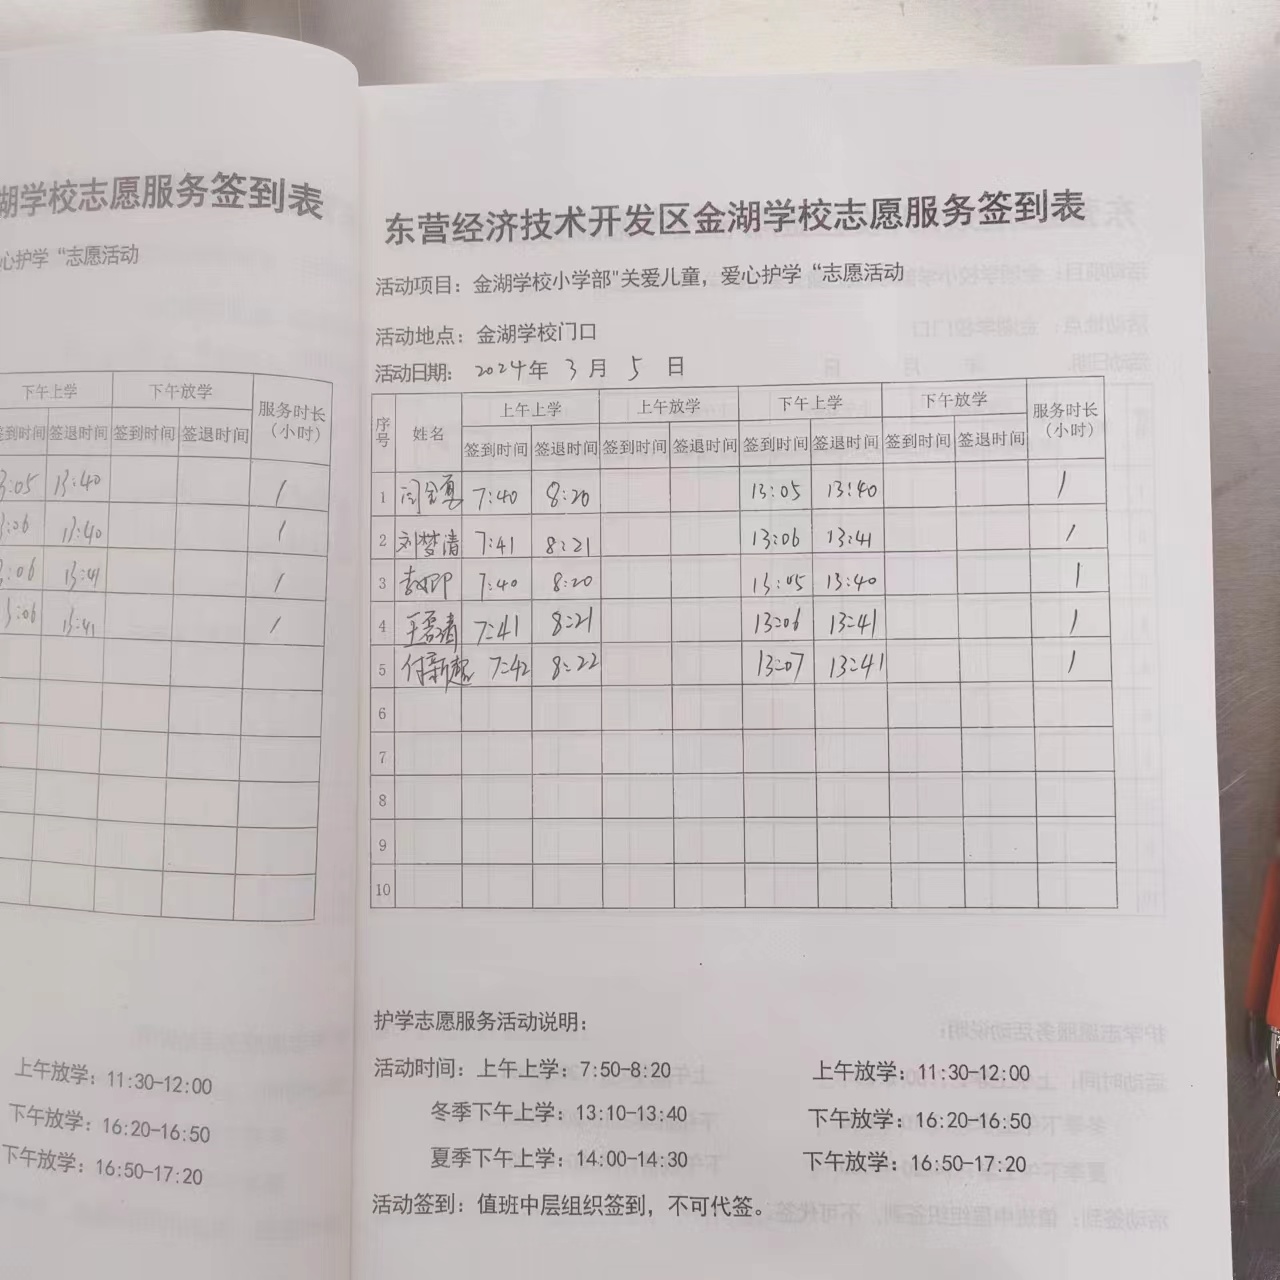 湖学校志愿服务签到表
心护学“志愿活动
下午上学 下午放学 服务时长（小时）
签到时间 签退时间 签到时间 签退时间
13:05 13:40 1
13:06 13:40 1
13:06 13:41 1
13:06 13:41 1
上午放学：11:30-12:00
下午放学：16:20-16:50
下午放学：16:50-17:20
东营经济技术开发区金湖学校志愿服务签到表
活动项目：金湖学校小学部"关爱儿童，爱心护学“志愿活动
活动地点：金湖学校门口
活动日期：2024年 3 月 5 日
序号 姓名 上午上学 上午放学 下午上学 下午放学 服务时长（小时）
签到时间 签退时间 签到时间 签退时间 签到时间 签退时间 签到时间 签退时间
1 7:40 8:20 13:05 13:40 1
2 刘梦清 7:41 8:21 13:06 13:41 1
3 7:40 8:20 13:05 13:40 1
4 7:41 8:21 13:06 13:41 1
5 付新超 7:42 8:22 13:07 13:41 1
6
7
8
9
10
护学志愿服务活动说明：
活动时间：上午上学：7:50-8:20 上午放学：11:30-12:00
冬季下午上学：13:10-13:40 下午放学：16:20-16:50
夏季下午上学：14:00-14:30 下午放学：16:50-17:20
活动签到：值班中层组织签到，不可代签。